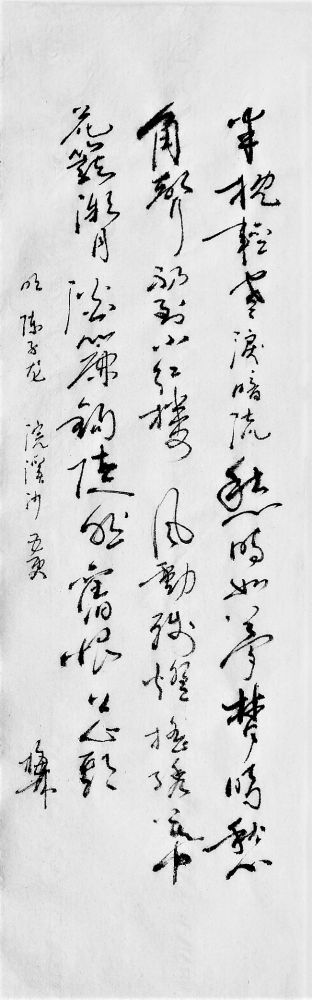 半枕輕寒淚暗流愁時如夢夢時愁
角聲初到小紅樓風動殘燈搖繡幕
花籠微月淡簾鈎陡然舊恨上心頭
明 陳子龍 浣溪沙 五更